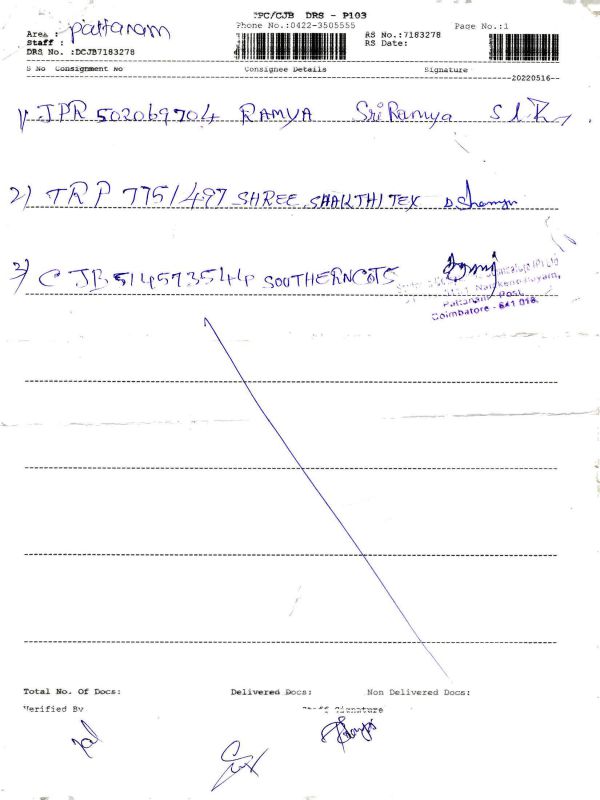 TPC/CJB DRS - P103
Phone No.:0422-3505555 Page No.:1
Area : Pattanam RS No.:7183278
Staff : RS Date:
DRS No. :DCJB7183278
S No Consignment No Consignee Details Signature
20220516
1) JPR 502069704 RAMYA Sri Ramya
2) TRP 7751497 SHREE SHAKTHI TEX
3) CJB 514573544 SOUTHERN COTS
Pattanam Post,
Coimbatore - 641 016.
Total No. Of Docs: Delivered Docs: Non Delivered Docs:
Verified By Staff Signature